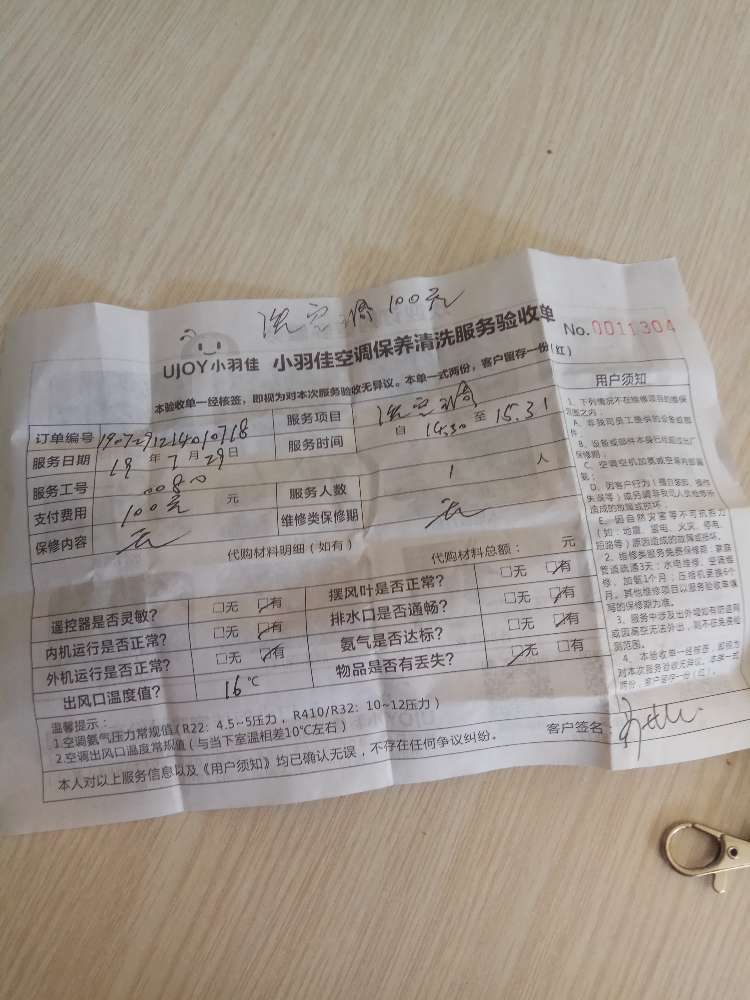 洗空调 100元
UJOY小羽佳 小羽佳空调保养清洗服务验收单 No.0011304
本验收单一经核签，即视为对本次服务验收无异议。本单一式两份，客户留存一份(红)
订单编号 服务项目 洗空调
服务日期 19 年 7 月 29 日 服务时间 自 14.30 至 15.31
服务工号 服务人数 1 人
支付费用 100元 元 维修类保修期 无
保修内容 无
代购材料明细 (如有) 代购材料总额： 元
遥控器是否灵敏？ □无 ☑有 摆风叶是否正常？ □无 □有
内机运行是否正常？ □无 ☑有 排水口是否通畅？ □无 □有
外机运行是否正常？ □无 ☑有 氨气是否达标？ □无 □有
出风口温度值？ 16 ℃ 物品是否有丢失？ ☑无 □有
温馨提示：
1.空调氨气压力常规值 (R22：4.5~5压力，R410/R32：10~12压力)
2.空调出风口温度常规值 (与当下室温相差10℃左右)
本人对以上服务信息以及《用户须知》均已确认无误，不存在任何争议纠纷。 客户签名：
用户须知
1、下列情况不在维修项目的维保范围之内：
A、非我司员工提供的设备或部件
B、设备或部件本身已经超过出厂保修期；
D、因客户行为
E、因自然灾害等不可抗拒力
(如：地震、雷电、火灾、停电、
短路等）原因造成的故障或损坏。
2、维修类服务免费保修期：家庭
管道疏通3天；水电维修、空调维
修、加氨1个月；压缩机更换6个
月。其他维修项目以服务验收单填
写的保修期为准。
4、本验收单一经核签，即视为
对本次服务验收无异议。本单一式
两份，客户留存一份(红)。